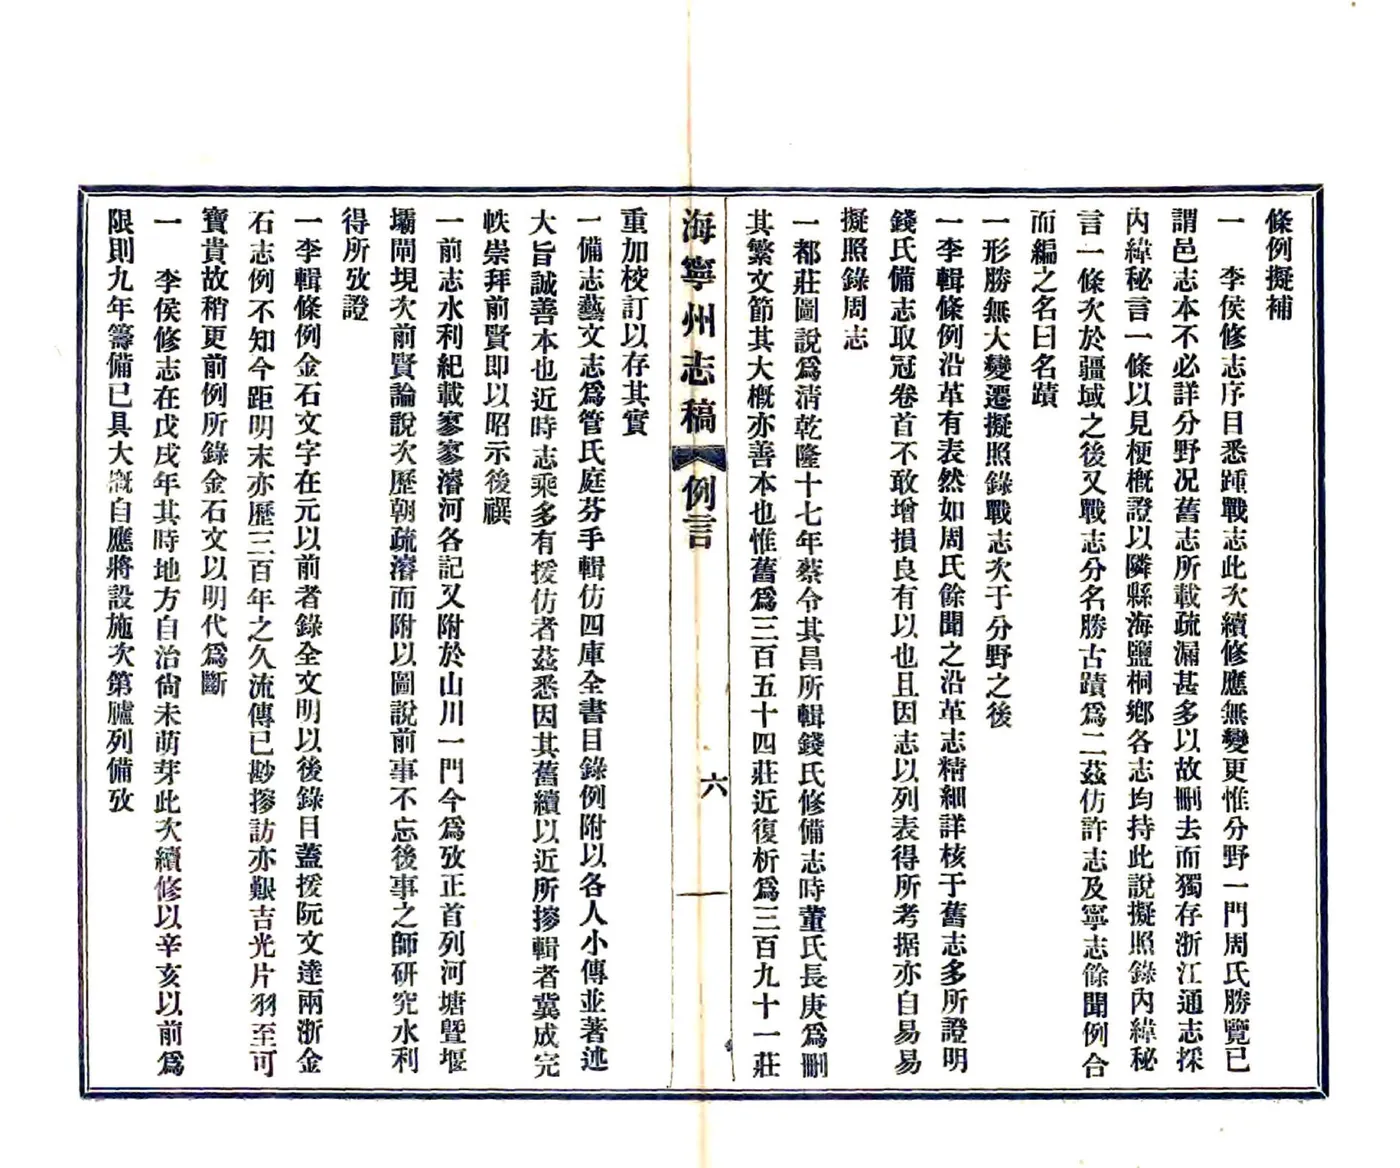 條例擬補
一　李侯修志序目悉踵戰志此次續修應無變更惟分野一門周氏勝覽已
謂邑志本不必詳分野况舊志所載疏漏甚多以故刪去而獨存浙江通志採
內緯秘言一條以見梗槪證以隣縣海鹽桐鄉各志均持此說擬照錄內緯秘
言一條次於疆域之後又戰志分名勝古蹟爲二茲仿許志及寧志餘聞例合
而編之名曰名蹟
一形勝無大變遷擬照錄戰志次于分野之後
一李輯條例沿革有表然如周氏餘聞之沿革志精細詳核于舊志多所證明
錢氏備志取冠卷首不敢增損良有以也且因志以列表得所考据亦自易易
擬照錄周志
一都莊圖說爲清乾隆十七年蔡令其昌所輯錢氏修備志時董氏長庚爲刪
其繁文節其大槪亦善本也惟舊爲三百五十四莊近復析爲三百九十一莊
海寧州志稿
例言
六
重加校訂以存其實
一備志藝文志爲管氏庭芬手輯仿四庫全書目錄例附以各人小傳並著述
大旨誠善本也近時志乘多有援仿者茲悉因其舊續以近所摉輯者冀成完
帙崇拜前賢即以昭示後禩
一前志水利紀載寥寥濬河各記又附於山川一門今爲攷正首列河塘暨堰
壩閘垷次前賢論說次歷朝疏濬而附以圖說前事不忘後事之師研究水利
得所攷證
一李輯條例金石文字在元以前者錄全文明以後錄目蓋援阮文達兩浙金
石志例不知今距明末亦歷三百年之久流傳已尠摉訪亦艱吉光片羽至可
寶貴故稍更前例所錄金石文以明代爲斷
一　李侯修志在戊戌年其時地方自治尙未萌芽此次續修以辛亥以前爲
限則九年籌備已具大槪自應將設施次第臚列備攷